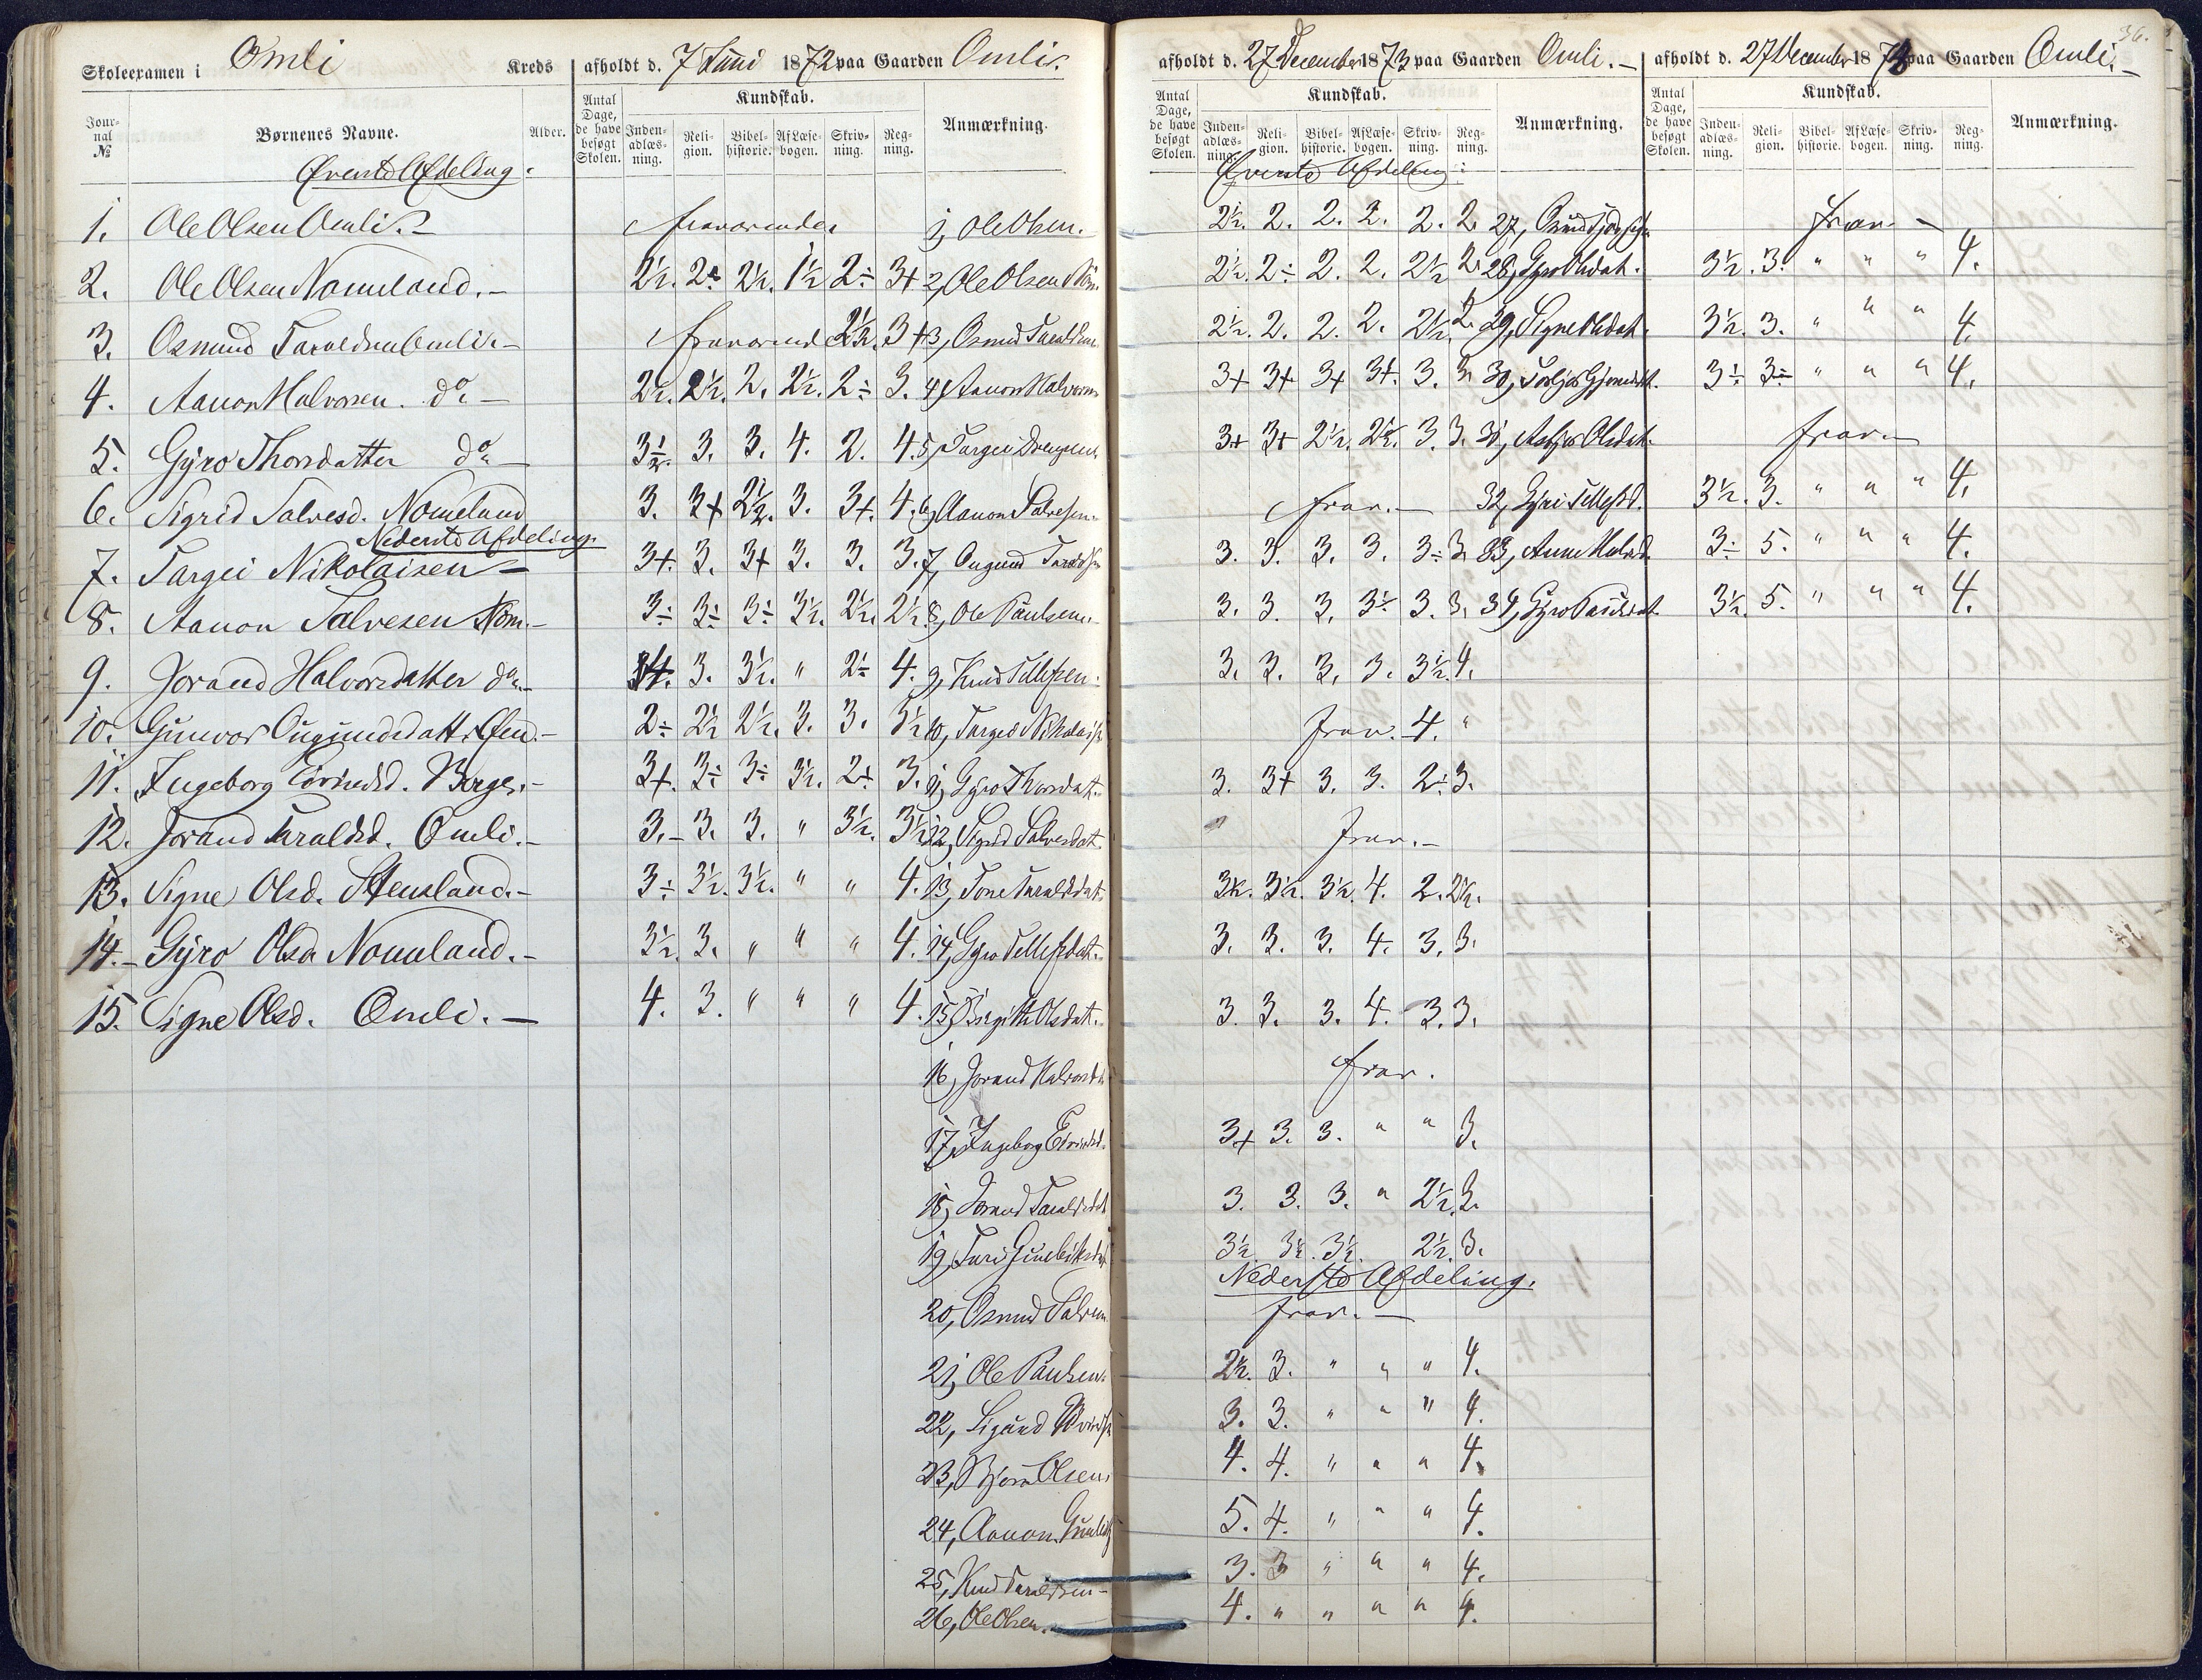 36.
Skoleexamen i Omli Kreds afholdt d. 7 Juni 1872 paa Gaarden Omli.
Journal № Børnenes Navne. Alder. Antal Dage, de have besøgt Skolen. Kundskab. Indenadlæsning. Religion. Bibelhistorie. Af Læsebogen. Skrivning. Regning. Anmærkning.
Øverste Afdeling.
1. Ole Olsen Omli. fraværende
2. Ole Olsen Nomeland. 2½. 2÷ 2½. 1½ 2÷ 3+
3. Osmund Taraldsen Omli. fraværend 2½. 3+
4. Aanon Halvorsen. do 2½. 2½. 2. 2½. 2÷ 3.
5. Gyro Thorsdatter do 3½. 3. 3. 4. 2. 4.
6. Sigrid Salvesd. Nomeland 3. 3+ 2½. 3. 3+. 4.
Nederste Afdeling.
7. Targei Nikolaisen 3+. 3. 3+ 3. 3. 3.
8. Aanon Salvesen Nom. 3÷ 3÷ 3÷ 3½. 2½. 2½.
9. Jorand Halvorsdatter do 3+. 3. 3½. " 2÷ 4.
10. Gunvor Ougundsdatt. 2÷ 2½ 2½. 3. 3. 3½
11. Ingeborg Eivindsd. Berge. 3+. 3÷ 3÷ 3½. 2+. 3.
12. Jorand Taraldsd. Omli. 3. 3. 3. " 3½. 3½
13. Signe Olsd. Stensland. 3÷ 3½. 3½. " " 4.
14. Gyro Olsd. Nomeland. 3½. 3. " " " 4.
15. Signe Olsd. Omli. 4. 3. " " " 4.
afholdt d. 27 December 1873 paa Gaarden Omli.
Antal Dage, de have besøgt Skolen. Kundskab. Indenadlæsning. Religion. Bibelhistorie. Af Læsebogen. Skrivning. Regning. Anmærkning.
Øverste Afdeling.
1, Ole Olsen. 2½. 2. 2. 2. 2. 2.
2, Ole Olsen Nom. 2½. 2÷ 2. 2. 2½ 2.
3, Osmund Taraldsen 2½. 2. 2. 2. 2½. 2.
4, Aanon Halvorsen 3+ 3+ 3+ 3+. 3. 3.
5, Targei 3+ 3+ 2½. 2½. 3. 3.
6, Aanon Salvesen. frav.
7, Ougund Taraldsen 3. 3. 3. 3. 3÷ 3.
8, Ole Paulsen. 3. 3. 3. 3½ 3. 3.
9, Knud Tellefsen. 3. 3. 3. 3. 3½. 4.
10, Targei Nikolais. frav. 4. "
11, Gyro Thorsdat. 3. 3+ 3. 3. 2÷ 3.
12, Sigrid Salvesdat. frav.
13, Tone Taraldsdat. 3½. 3½. 3½. 4. 2. 2½.
14, Gyro Tellefsdat. 3. 3. 3. 4. 3. 3.
15, Birgitte Olsdat. 3. 3. 3. 4. 3. 3.
16, Jorand Halvorsd. frav.
17, Ingeborg Eivindsd. 3+ 3. 3. " " 3.
18, Jorand Taraldsdt 3. 3. 3. " 2½. 3.
19, Turi 3½ 3½. 3½. 2½. 3.
Nederste Afdeling.
20, Osmund Salvesen. frav.
21, Ole Paulsen. 2½. 3. " " " 4.
22, Sigurd 3. 3. " " " 4.
23, Bjørn Olsen. 4. 4. " " " 4.
24, Aanon 5. 4. " " " 4.
25, Knud Taraldsen 3. 3 " " " 4.
26, Ole Olsen. 4. " " " " 4.
afholdt d. 27 December 1873 paa Gaarden Omli.
Antal Dage, de have besøgt Skolen. Kundskab. Indenadlæsning. Religion. Bibelhistorie. Af Læsebogen. Skrivning. Regning. Anmærkning.
27, frav.
28, Gyro Olsdat. 3½. 3. " " " 4.
29, Signe Olsdat. 3½. 3. " " " 4.
30, 3÷ 3÷ " " " 4.
31, Olsdat. frav.
32, Gyri Tellefsd. 3½. 3. " " " 4.
33, Anne 3÷ 5. " " " 4.
34, Gyro Paulsdat. 3½. 5. " " " 4.